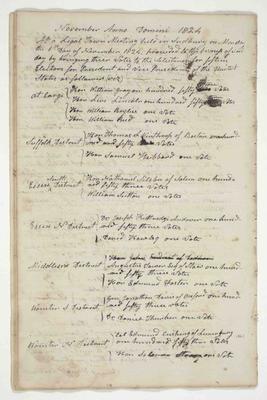 November Anno Domini 1824
At a Legal Town Meeting held in Sudbury on Monday
the 1st Day of November 1824, proceeded to the
day by bringing three Votes to the Selectmen for fifteen
Electors for President and Vice President of the United
States as followes (viz)
At Large
Hon William Gray one hundred fifty Vote
Hon Levi Lincoln one hundred and fifty Votes
Hon William one Vote
Hon William Reed one Vote
Suffolk District
Hon Thomas L Winthrop of Boston one hund
and fifty three Votes
Hon Samuel Hubbard one Vote
Essex South District
Hon Nathaniel Silsbee of Salem one hund
and fifty three Votes
William Sutton one Vote
Essex N District
Dr Joseph Kittredge Andover one hund
and fifty three Votes
David one Vote
Middlesex District
Augustus one hund
and fifty three Votes
Hon Edmund Foster one Vote
Worcester S District
Hon Jonathan Davis of Oxford one hund
and fifty three Votes
Dr Daniel Thurber one Vote
Worcester N District
Edmund Cushing of Lunenburg
one hundred and fifty three Votes
Hon one Vote